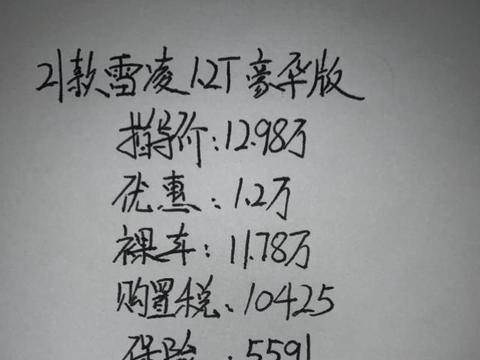 21款雷凌1.2T豪华版
指导价:12.98万
优惠:1.2万
裸车:11.78万
购置税:10425
保险:5591